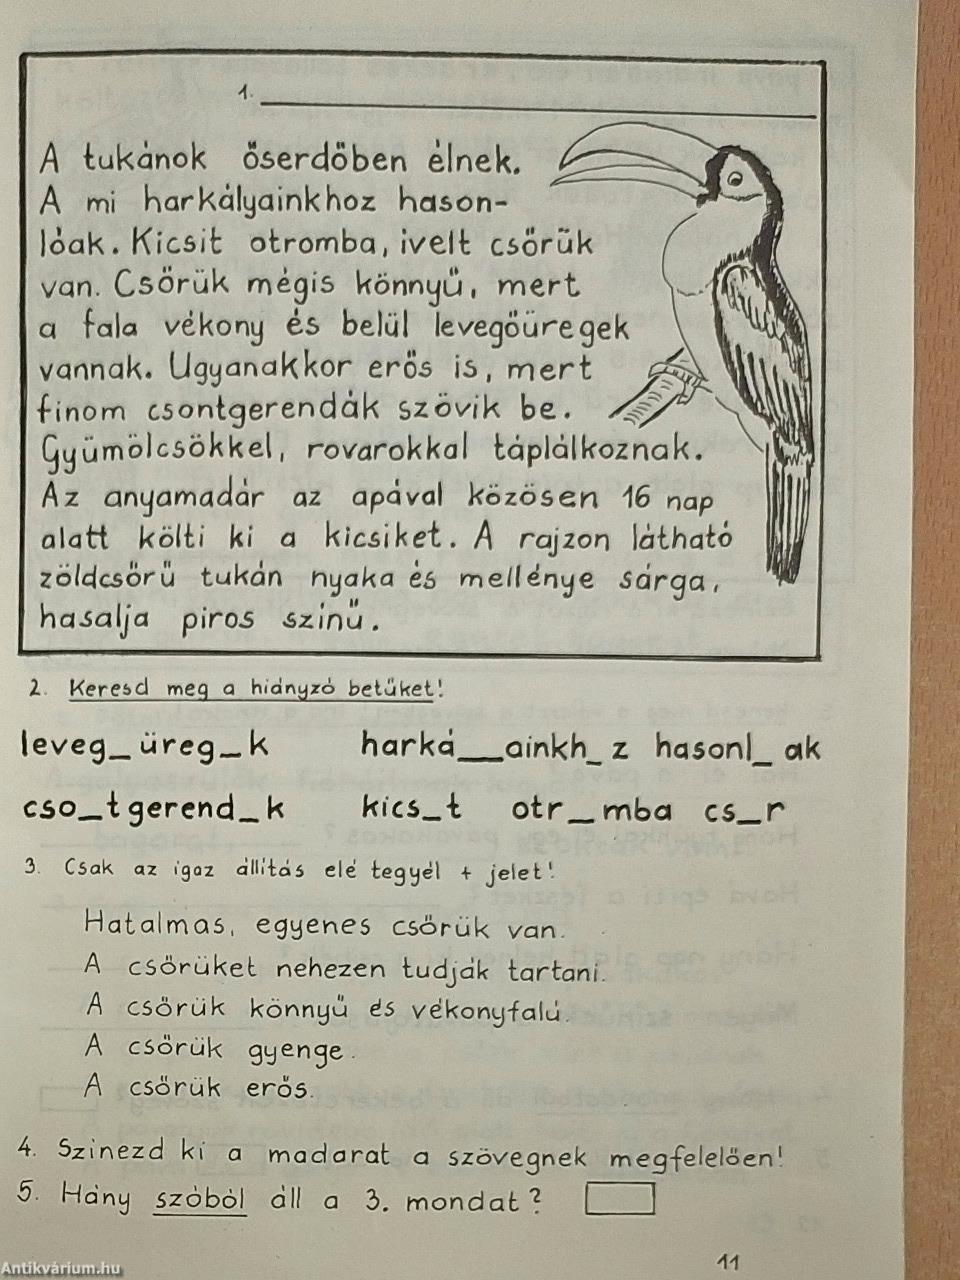 1.
A tukánok őserdőben élnek.
A mi harkályainkhoz hason-
lóak. Kicsit otromba, ivelt csőrük
van. Csőrük mégis könnyű, mert
a fala vékony és belül levegőüregek
vannak. Ugyanakkor erős is, mert
finom csontgerendák szövik be.
Gyümölcsökkel, rovarokkal táplálkoznak.
Az anyamadár az apával közösen 16 nap
alatt költi ki a kicsiket. A rajzon látható
zöldcsőrű tukán nyaka és mellénye sárga,
hasalja piros szinű.
2. Keresd meg a hiányzó betűket!
leveg_üreg_k harká__ainkh_z hasonl_ak
cso_tgerend_k kics_t otr_mba cs_r
3. Csak az igaz állítás elé tegyél + jelet!
Hatalmas, egyenes csőrük van.
A csőrüket nehezen tudják tartani.
A csőrük könnyű és vékonyfalú.
A csőrük gyenge.
A csőrük erős.
4. Szinezd ki a madarat a szövegnek megfelelően!
5. Hány szóból áll a 3. mondat?
11
Antikvárium.hu